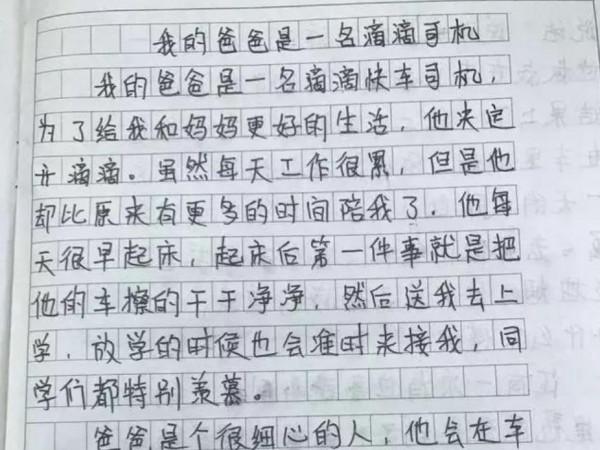 我的爸爸是一名滴滴司机
我的爸爸是一名滴滴快车司机,
为了给我和妈妈更好的生活,他决定
开滴滴。虽然每天工作很累,但是他
却比原来有更多的时间陪我了.他每
天很早起床,起床后第一件事就是把
他的车擦的干干净净,然后送我去上
学,放学的时候也会准时来接我,同
学们都特别羡慕。
爸爸是个很细心的人,他会在车